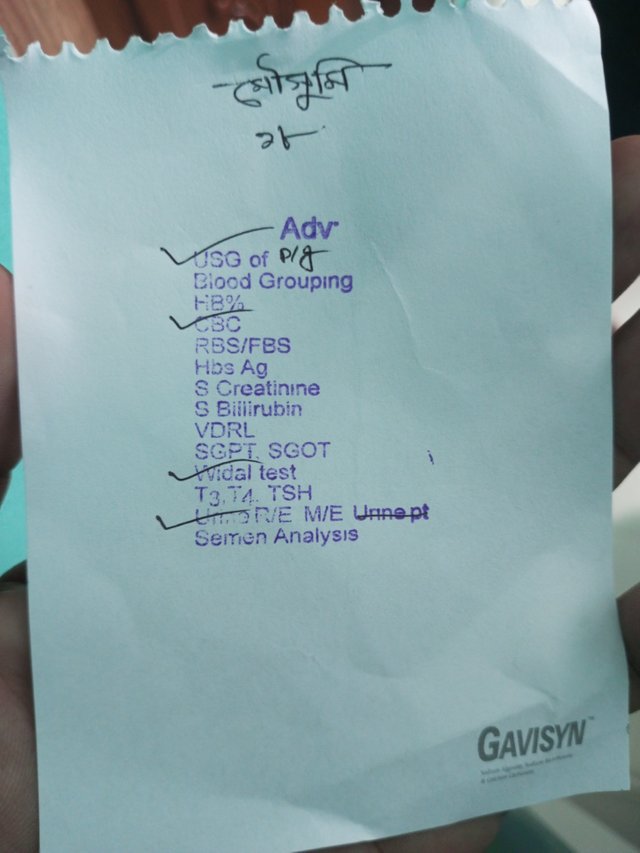 মৌসুমি
২৮
Adv
USG of P/g
Blood Grouping
HB%
CBC
RBS/FBS
Hbs Ag
S Creatinine
S Billirubin
VDRL
SGPT, SGOT
Widal test
T3,T4, TSH
Urine R/E M/E Urine pt
Semen Analysis
GAVISYN™